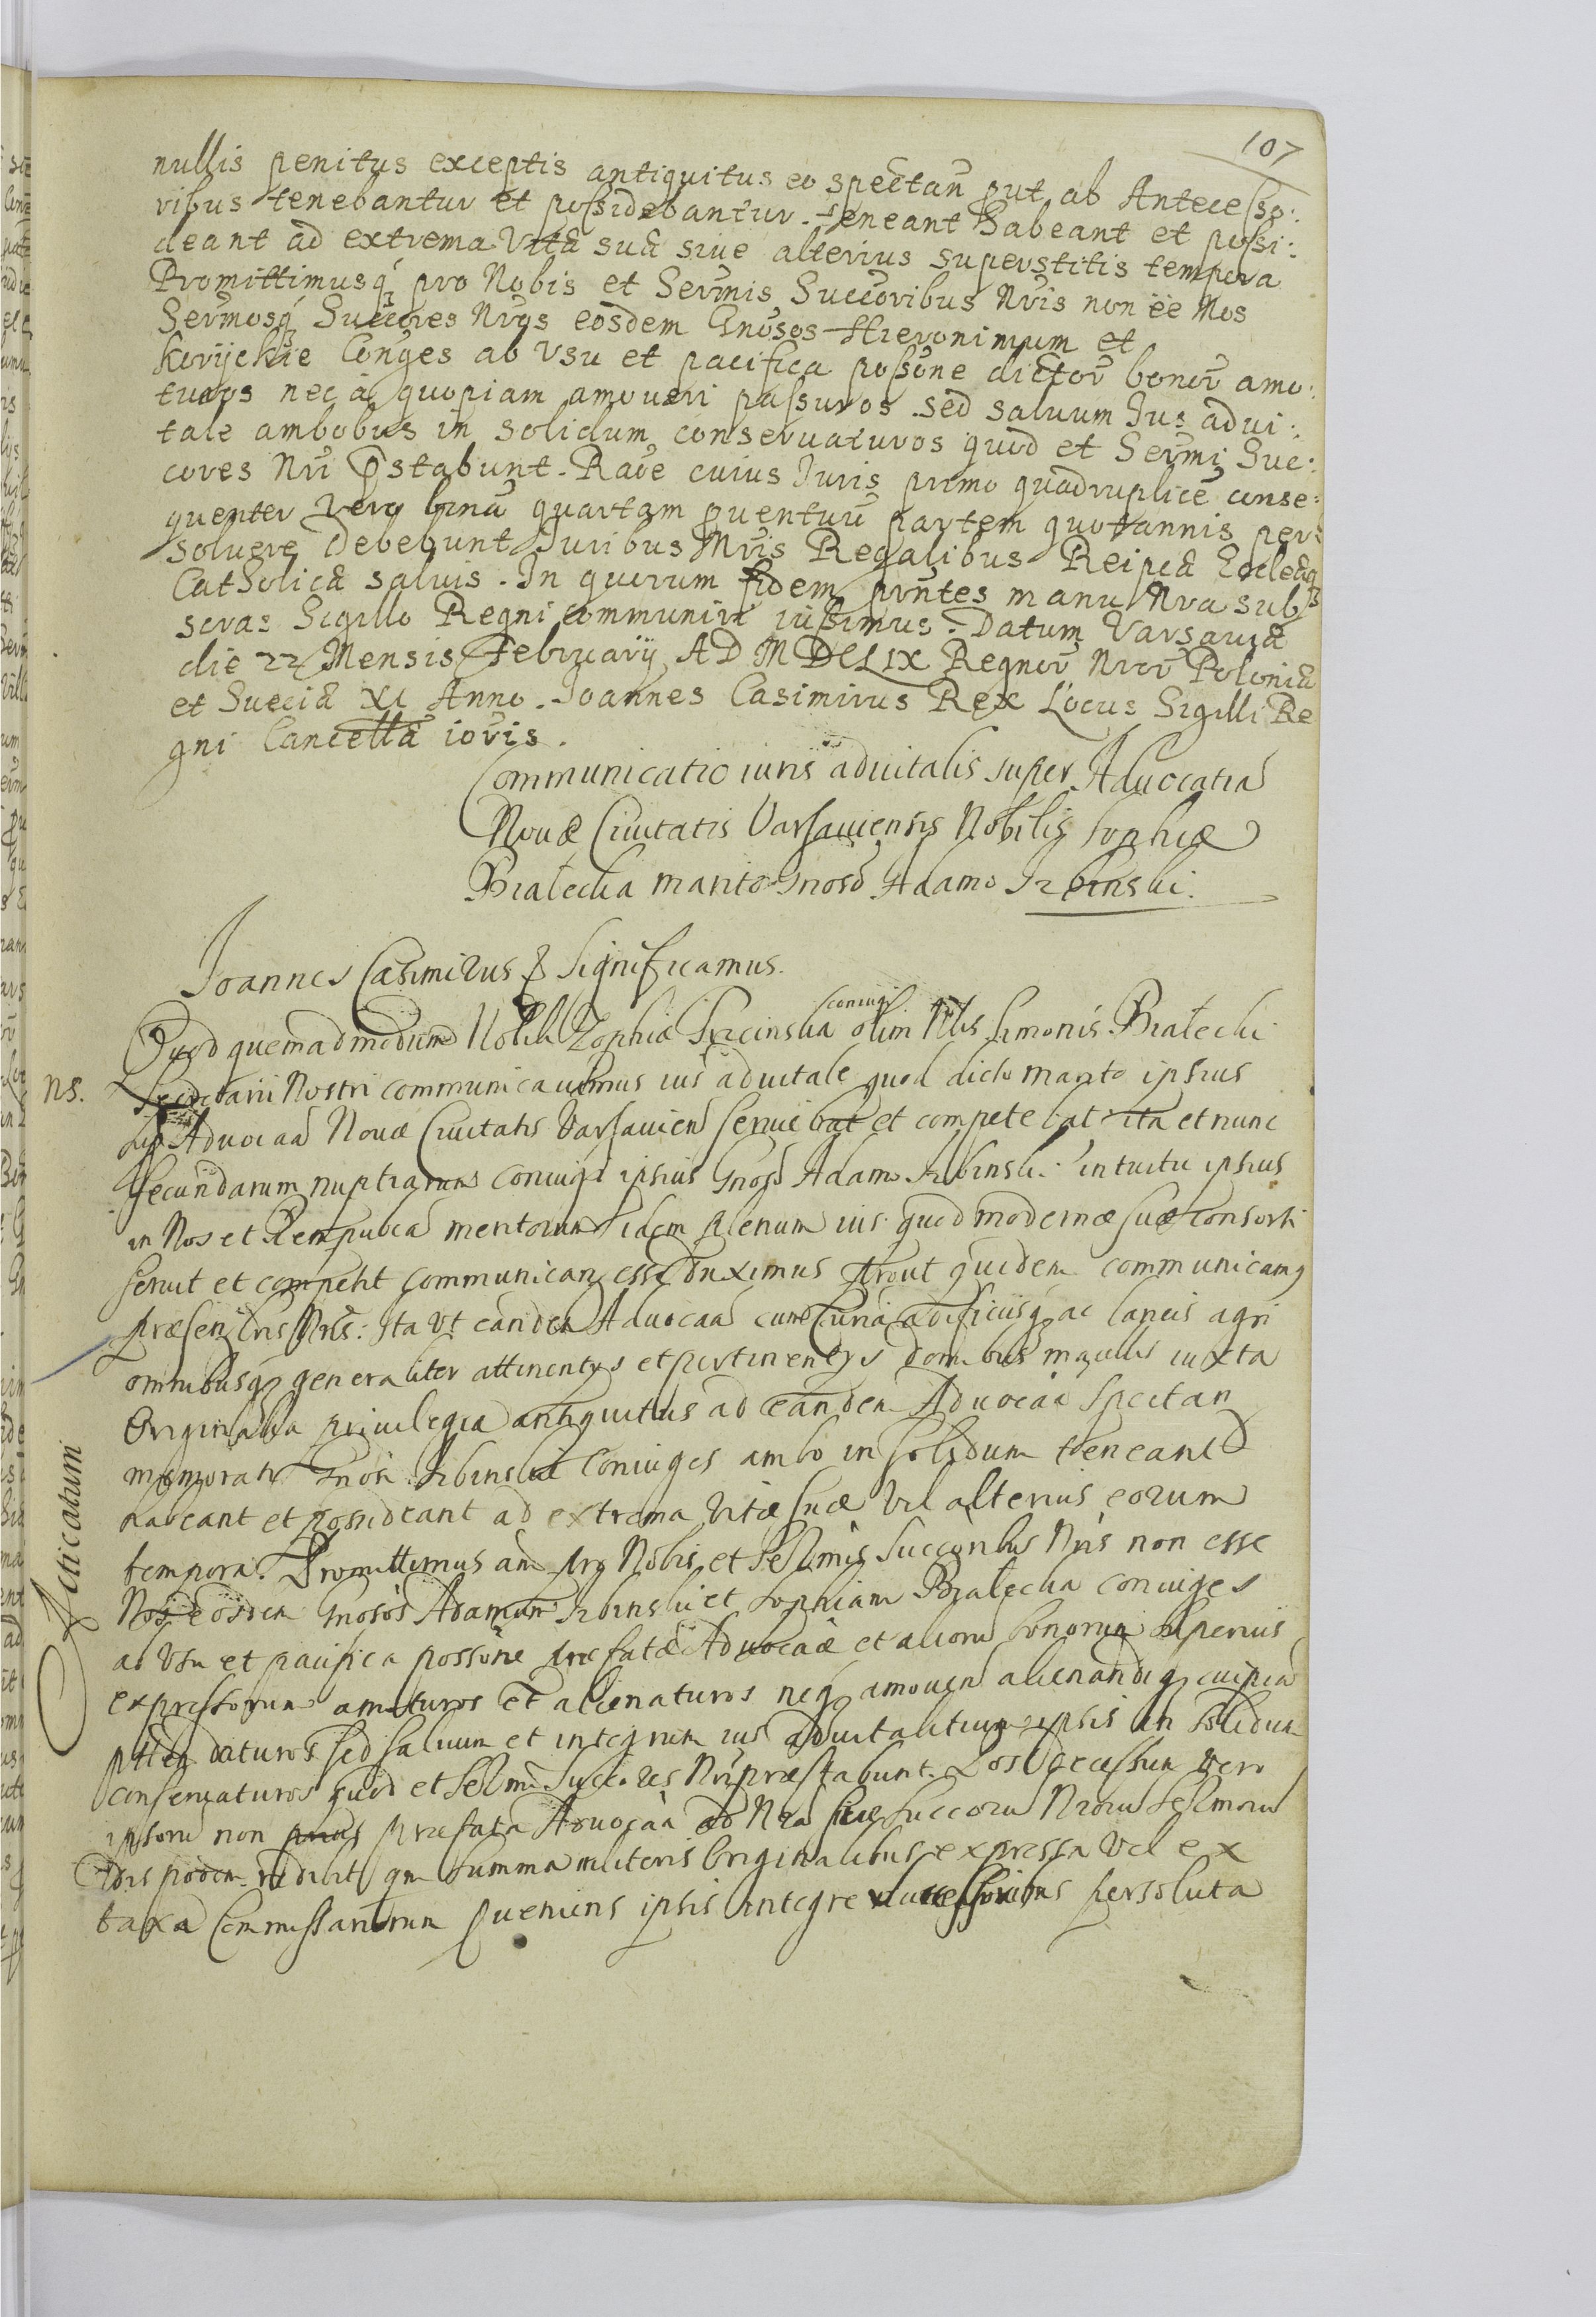 107
nullis penitus exceptis antiquitus eo spectan put ab Antecesso:
ribus tenebantur et possidebantur. teneant habeant et possi:
deant ad extrema Vitæ suæ siue alterius superstitis tempora
Promittimusq pro Nobis et Sermis Succoribus Nris non ee Nos
Sermosq Succores Nros eosdem Gnosos Hieronimum et
korijckie Conges ab Vsu et pacifica possone dictor bonor amo:
turos nec à quopiam amoueri passuros sed saluum Jus adui:
tale ambobus in solidum conseruaturos quod et Sermi Suc:
cores Nri pstabunt. Raoe cuius Juris primo quadruplice conse:
quenter vero bina quartam puentuu partem quotannis per:
soluere debebunt Juribus Nris Regalibus Reipcæ Ecclæq
Catholicæ saluis. In quorum fidem pnntes manu Nra sub
scras Sigillo Regni communire iussimus. Datum Varsauiæ
die 22 Mensis February AD MDCLIX Regnor Nror Poloniæ
et Sueciæ XI Anno. Joannes Casimirus Rex Locus Sigilli Re
gni Cancellæ ioris.
Communicatio iuris aduitalis super Aduocatia
Nouæ Ciuitatis Varsauiensis Nobilis Sophiæ
Bialecka marito Gnoso Adamo
Joannes Casimirus & Significamus.
coniugi
Quod quemadmodum Nobili Zophiæ olim Nbilis Simonis Bialecki
ns.
Secretarii Nostri communicauimus ius aduitale quod dicto marito ipsius
sup Aduocaa Nouæ Ciuitatis Varsauien seruiebat et competebat ita et nunc
secundarum nuptiarum coniugi ipsius Gnoso Adamo intuitu ipsius
in Nos et Rempubca meritorum idem plenum ius quod modernæ suæ consorti
seruit et competit communican esse duximus prout quidem communicamq
præsentibus Nris: Ita vt eandem Aduocaa cum Curia ædificiisq ac laneis agri
omnibusq generaliter attinentys et pertinentys domibus iuxta
Originalia priuilegia antiquitus ad eandem Aduocaa spectan
memorati Gnosi coniuges ambo in solidum teneant
habeant et possideant ad extrema vitæ suæ vel alterius eorum
tempora. Promittimus pro Nobis et Sermis Succoribus Nris non esse
Nos eosdem Gnosos Adamum et Sophiam Bialecka coniuges
ab Vsu et pacifica possone præfatæ Aduocaæ et alioru bonorum superius
expressorum amoturos et alienaturos neq amouen alienandiq cuipia
ptem daturos sed saluum et integrum ius aduitalitium ipsis in solidum
conseruaturos quod et Sermi Succores Nri præstabunt. Post decessum vero
ipsoru non prius præfata Aduocaa ad Nra siue Succoru Nroru Sermoru
redibit qm summa in literis originalibus expressa vel ex
taxa Commissariorum pueniens ipsis integre vel successoribus persoluta
Acticatum